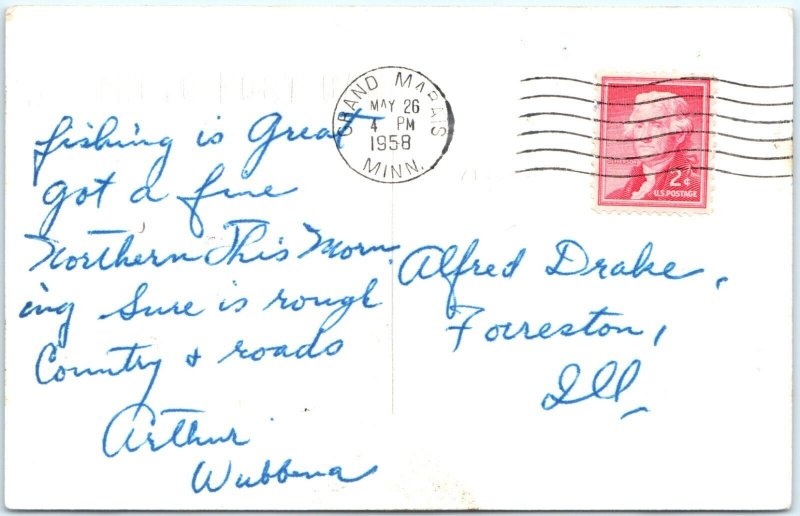 GRAND MARAIS
MAY 26
4 PM
1958
MINN.
2¢
U.S. POSTAGE
fishing is Great
got a fine
Northern This Morn
ing Sure is rough
Country & roads
Arthur
Wubbena
Alfred Drake,
Forreston,
Ill,